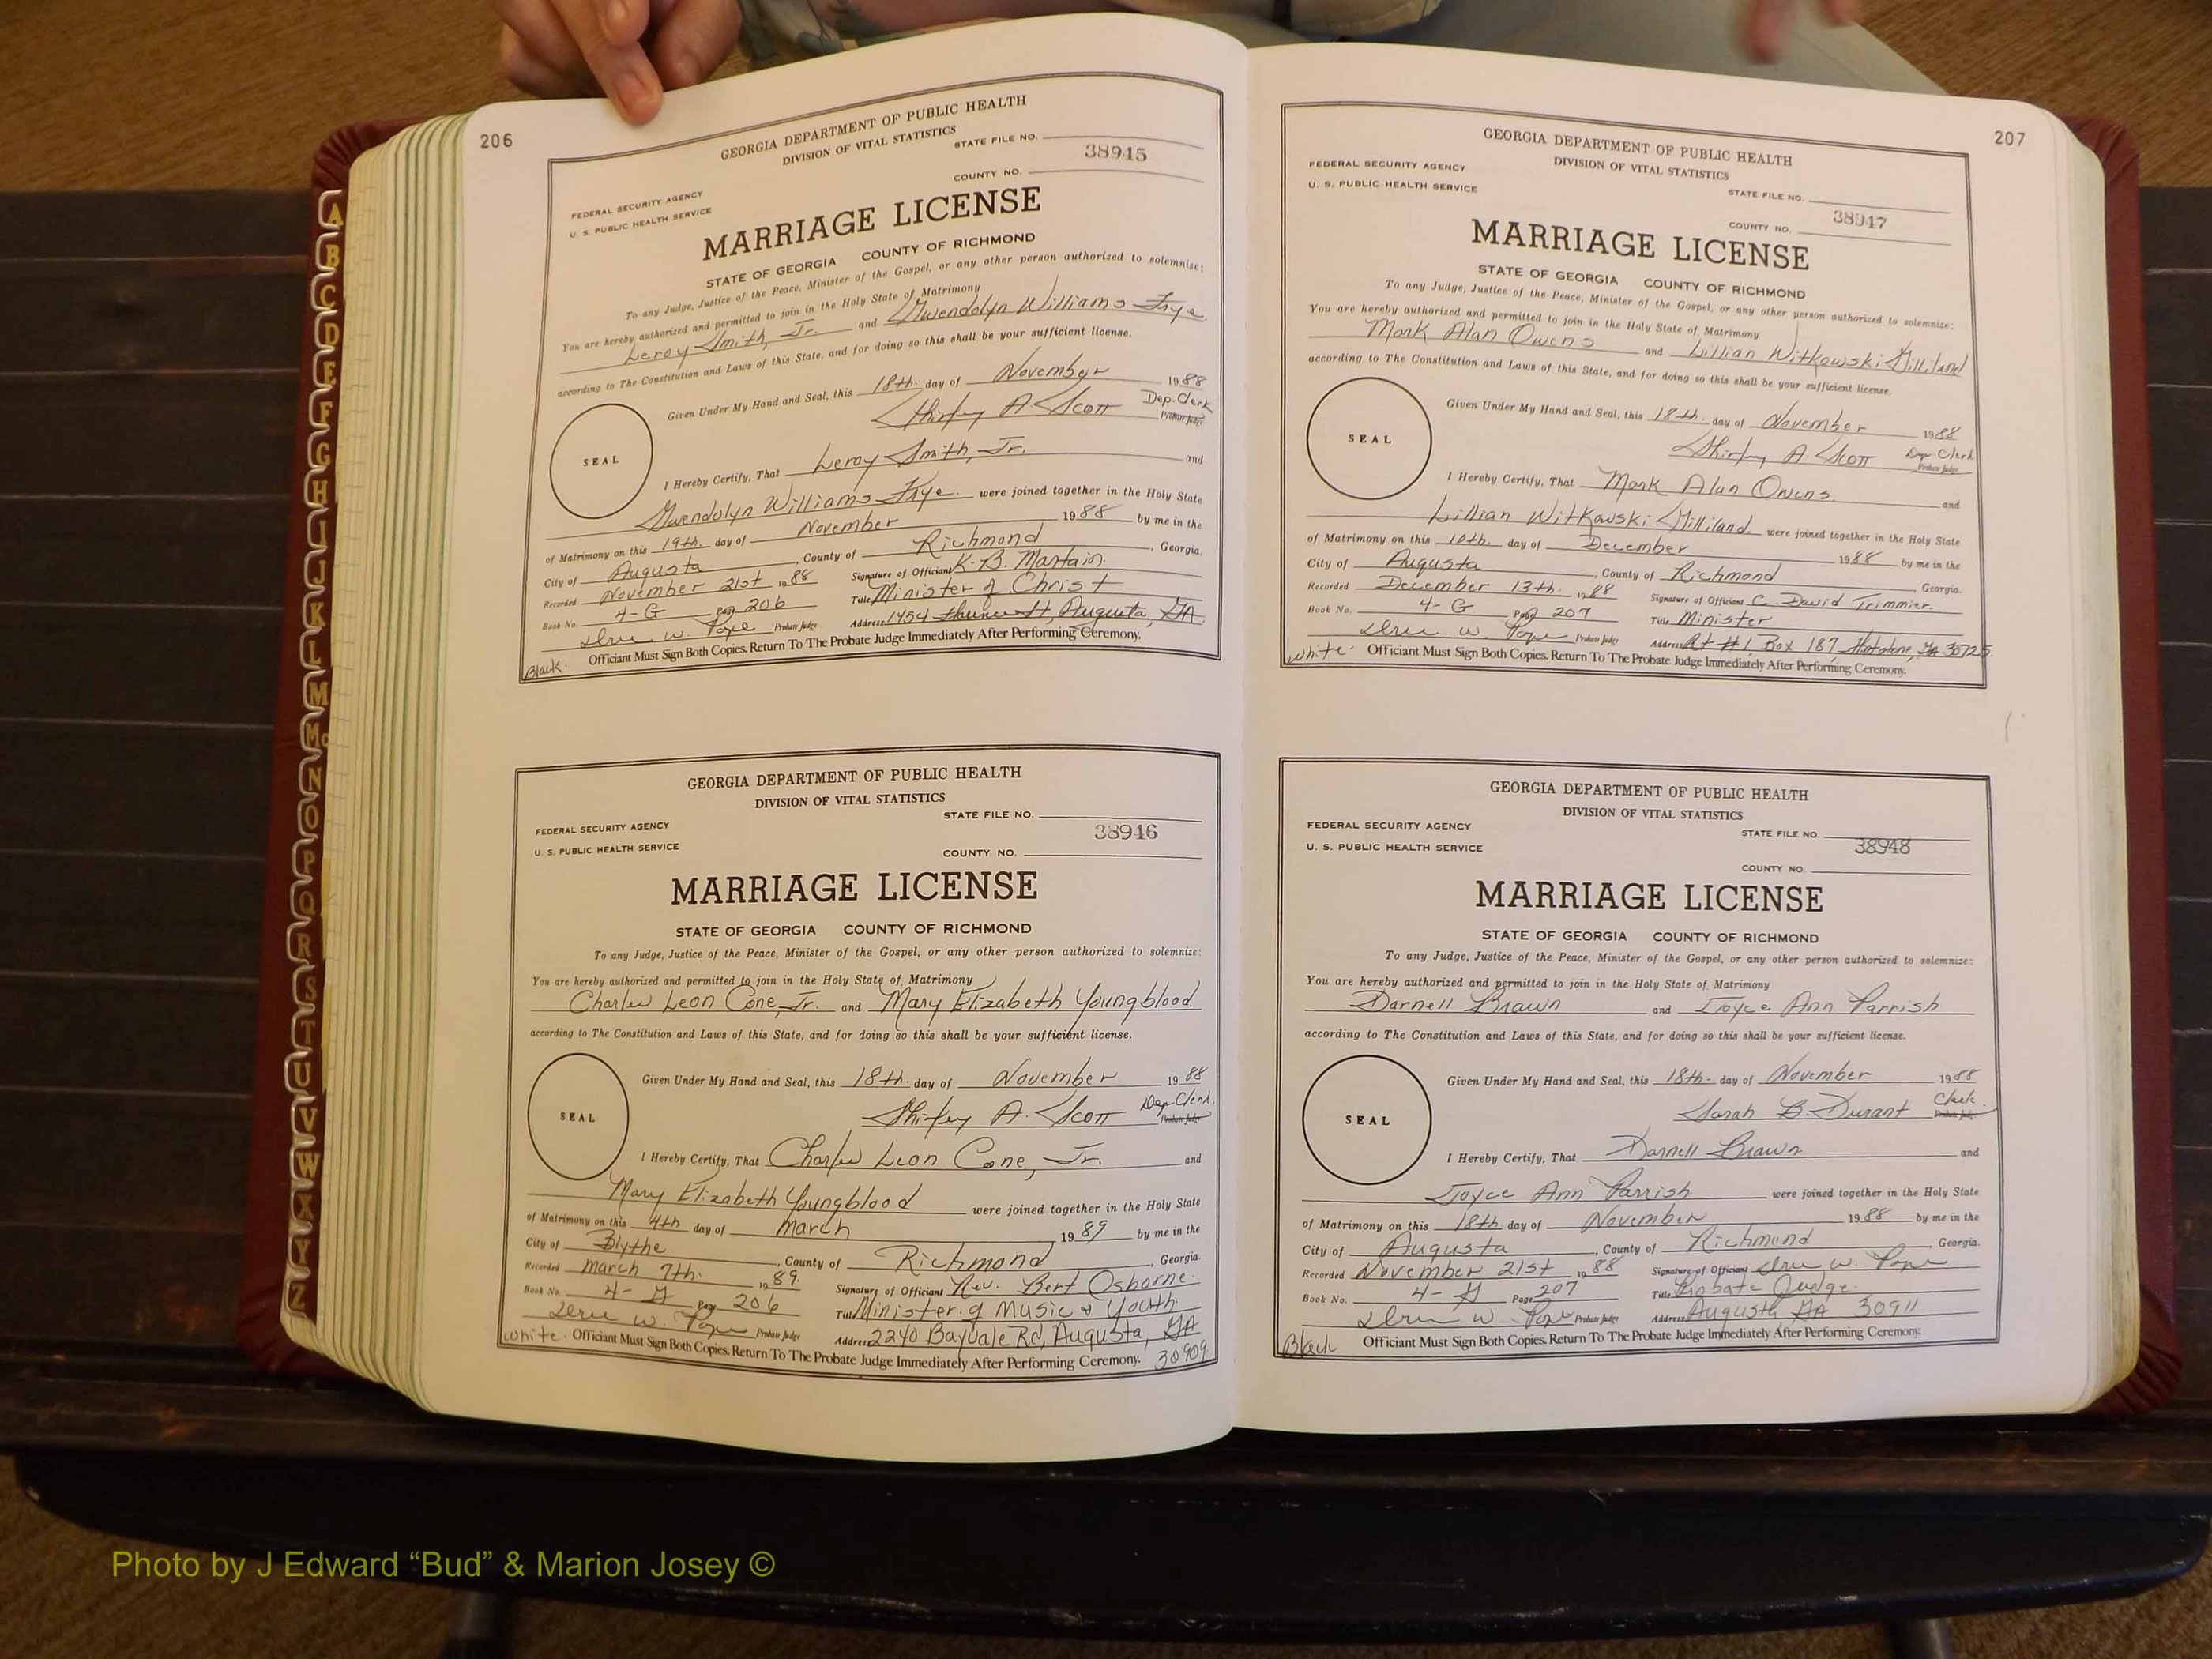 206
GEORGIA DEPARTMENT OF PUBLIC HEALTH
DIVISION OF VITAL STATISTICS
STATE FILE NO.
38945
FEDERAL SECURITY AGENCY
COUNTY NO.
U. S. PUBLIC HEALTH SERVICE
MARRIAGE LICENSE
STATE OF GEORGIA COUNTY OF RICHMOND
To any Judge, Justice of the Peace, Minister of the Gospel, or any other person authorized to solemnize:
You are hereby authorized and permitted to join in the Holy State of Matrimony
Leroy Smith, Jr. and Gwendolyn Williams Frye
according to The Constitution and Laws of this State, and for doing so this shall be your sufficient license.
Given Under My Hand and Seal, this 18th. day of November 1988
Shirley A. Scott Dep. Clerk
Probate Judge
SEAL
I Hereby Certify, That Leroy Smith, Jr. and
Gwendolyn Williams Frye. were joined together in the Holy State
of Matrimony on this 19th. day of November 1988 by me in the
City of Augusta, County of Richmond, Georgia.
Recorded November 21st 1988 Signature of Officiant K. B. Martain.
Book No. 4-G Page 206 Title Minister of Christ
W. Pope Probate Judge Address 1454 Augusta, GA.
Black. Officiant Must Sign Both Copies. Return To The Probate Judge Immediately After Performing Ceremony.
GEORGIA DEPARTMENT OF PUBLIC HEALTH
DIVISION OF VITAL STATISTICS
STATE FILE NO.
FEDERAL SECURITY AGENCY
38946
U. S. PUBLIC HEALTH SERVICE
COUNTY NO.
MARRIAGE LICENSE
STATE OF GEORGIA COUNTY OF RICHMOND
To any Judge, Justice of the Peace, Minister of the Gospel, or any other person authorized to solemnize:
You are hereby authorized and permitted to join in the Holy State of Matrimony
Charles Leon Cone, Jr. and Mary Elizabeth Youngblood
according to The Constitution and Laws of this State, and for doing so this shall be your sufficient license.
Given Under My Hand and Seal, this 18th. day of November 1988
Shirley A. Scott Dep. Clerk.
Probate Judge
SEAL
I Hereby Certify, That Charles Leon Cone, Jr. and
Mary Elizabeth Youngblood were joined together in the Holy State
of Matrimony on this 4th day of March 1989 by me in the
City of Blythe, County of Richmond, Georgia.
Recorded March 7th. 1989. Signature of Officiant Rev. Bert Osborne.
Book No. 4-G Page 206 Title Minister of Music & Youth
W. Pope Probate Judge Address 2240 Bayvale Rd, Augusta, GA
White. Officiant Must Sign Both Copies. Return To The Probate Judge Immediately After Performing Ceremony. 30909
207
GEORGIA DEPARTMENT OF PUBLIC HEALTH
DIVISION OF VITAL STATISTICS
FEDERAL SECURITY AGENCY
STATE FILE NO.
U. S. PUBLIC HEALTH SERVICE
38947
COUNTY NO.
MARRIAGE LICENSE
STATE OF GEORGIA COUNTY OF RICHMOND
To any Judge, Justice of the Peace, Minister of the Gospel, or any other person authorized to solemnize:
You are hereby authorized and permitted to join in the Holy State of Matrimony
Mark Alan Owens and Lillian Witkowski Gilliland
according to The Constitution and Laws of this State, and for doing so this shall be your sufficient license.
Given Under My Hand and Seal, this 18th. day of November 1988
Shirley A. Scott Dep Clerk
Probate Judge
SEAL
I Hereby Certify, That Mark Alan Owens. and
Lillian Witkowski Gilliland. were joined together in the Holy State
of Matrimony on this 10th. day of December 1988 by me in the
City of Augusta, County of Richmond, Georgia.
Recorded December 13th. 1988 Signature of Officiant C. David Trimmier.
Book No. 4-G Page 207 Title Minister
W. Pope Probate Judge Address Rt #1, Box 187 GA
White. Officiant Must Sign Both Copies. Return To The Probate Judge Immediately After Performing Ceremony.
GEORGIA DEPARTMENT OF PUBLIC HEALTH
DIVISION OF VITAL STATISTICS
FEDERAL SECURITY AGENCY
STATE FILE NO.
U. S. PUBLIC HEALTH SERVICE
38948
COUNTY NO.
MARRIAGE LICENSE
STATE OF GEORGIA COUNTY OF RICHMOND
To any Judge, Justice of the Peace, Minister of the Gospel, or any other person authorized to solemnize:
You are hereby authorized and permitted to join in the Holy State of Matrimony
Darnell Brawn and Joyce Ann Parrish
according to The Constitution and Laws of this State, and for doing so this shall be your sufficient license.
Given Under My Hand and Seal, this 18th. day of November 1988
Sarah B. Durant Clerk.
Probate Judge
SEAL
I Hereby Certify, That Darnell Brawn and
Joyce Ann Parrish. were joined together in the Holy State
of Matrimony on this 18th. day of November 1988 by me in the
City of Augusta, County of Richmond Georgia.
Recorded November 21st 1988 Signature of Officiant W. Pope
Book No. 4-G Page 207 Title Probate Judge.
W. Pope Probate Judge Address Augusta, GA 30911
Black Officiant Must Sign Both Copies. Return To The Probate Judge Immediately After Performing Ceremony.
A
B
C
D
E
F
G
H
I
J
K
L
M
Mc
N
O
P
Q
R
S
T
U
V
W
X
Y
Z
Photo by J Edward “Bud” & Marion Josey ©